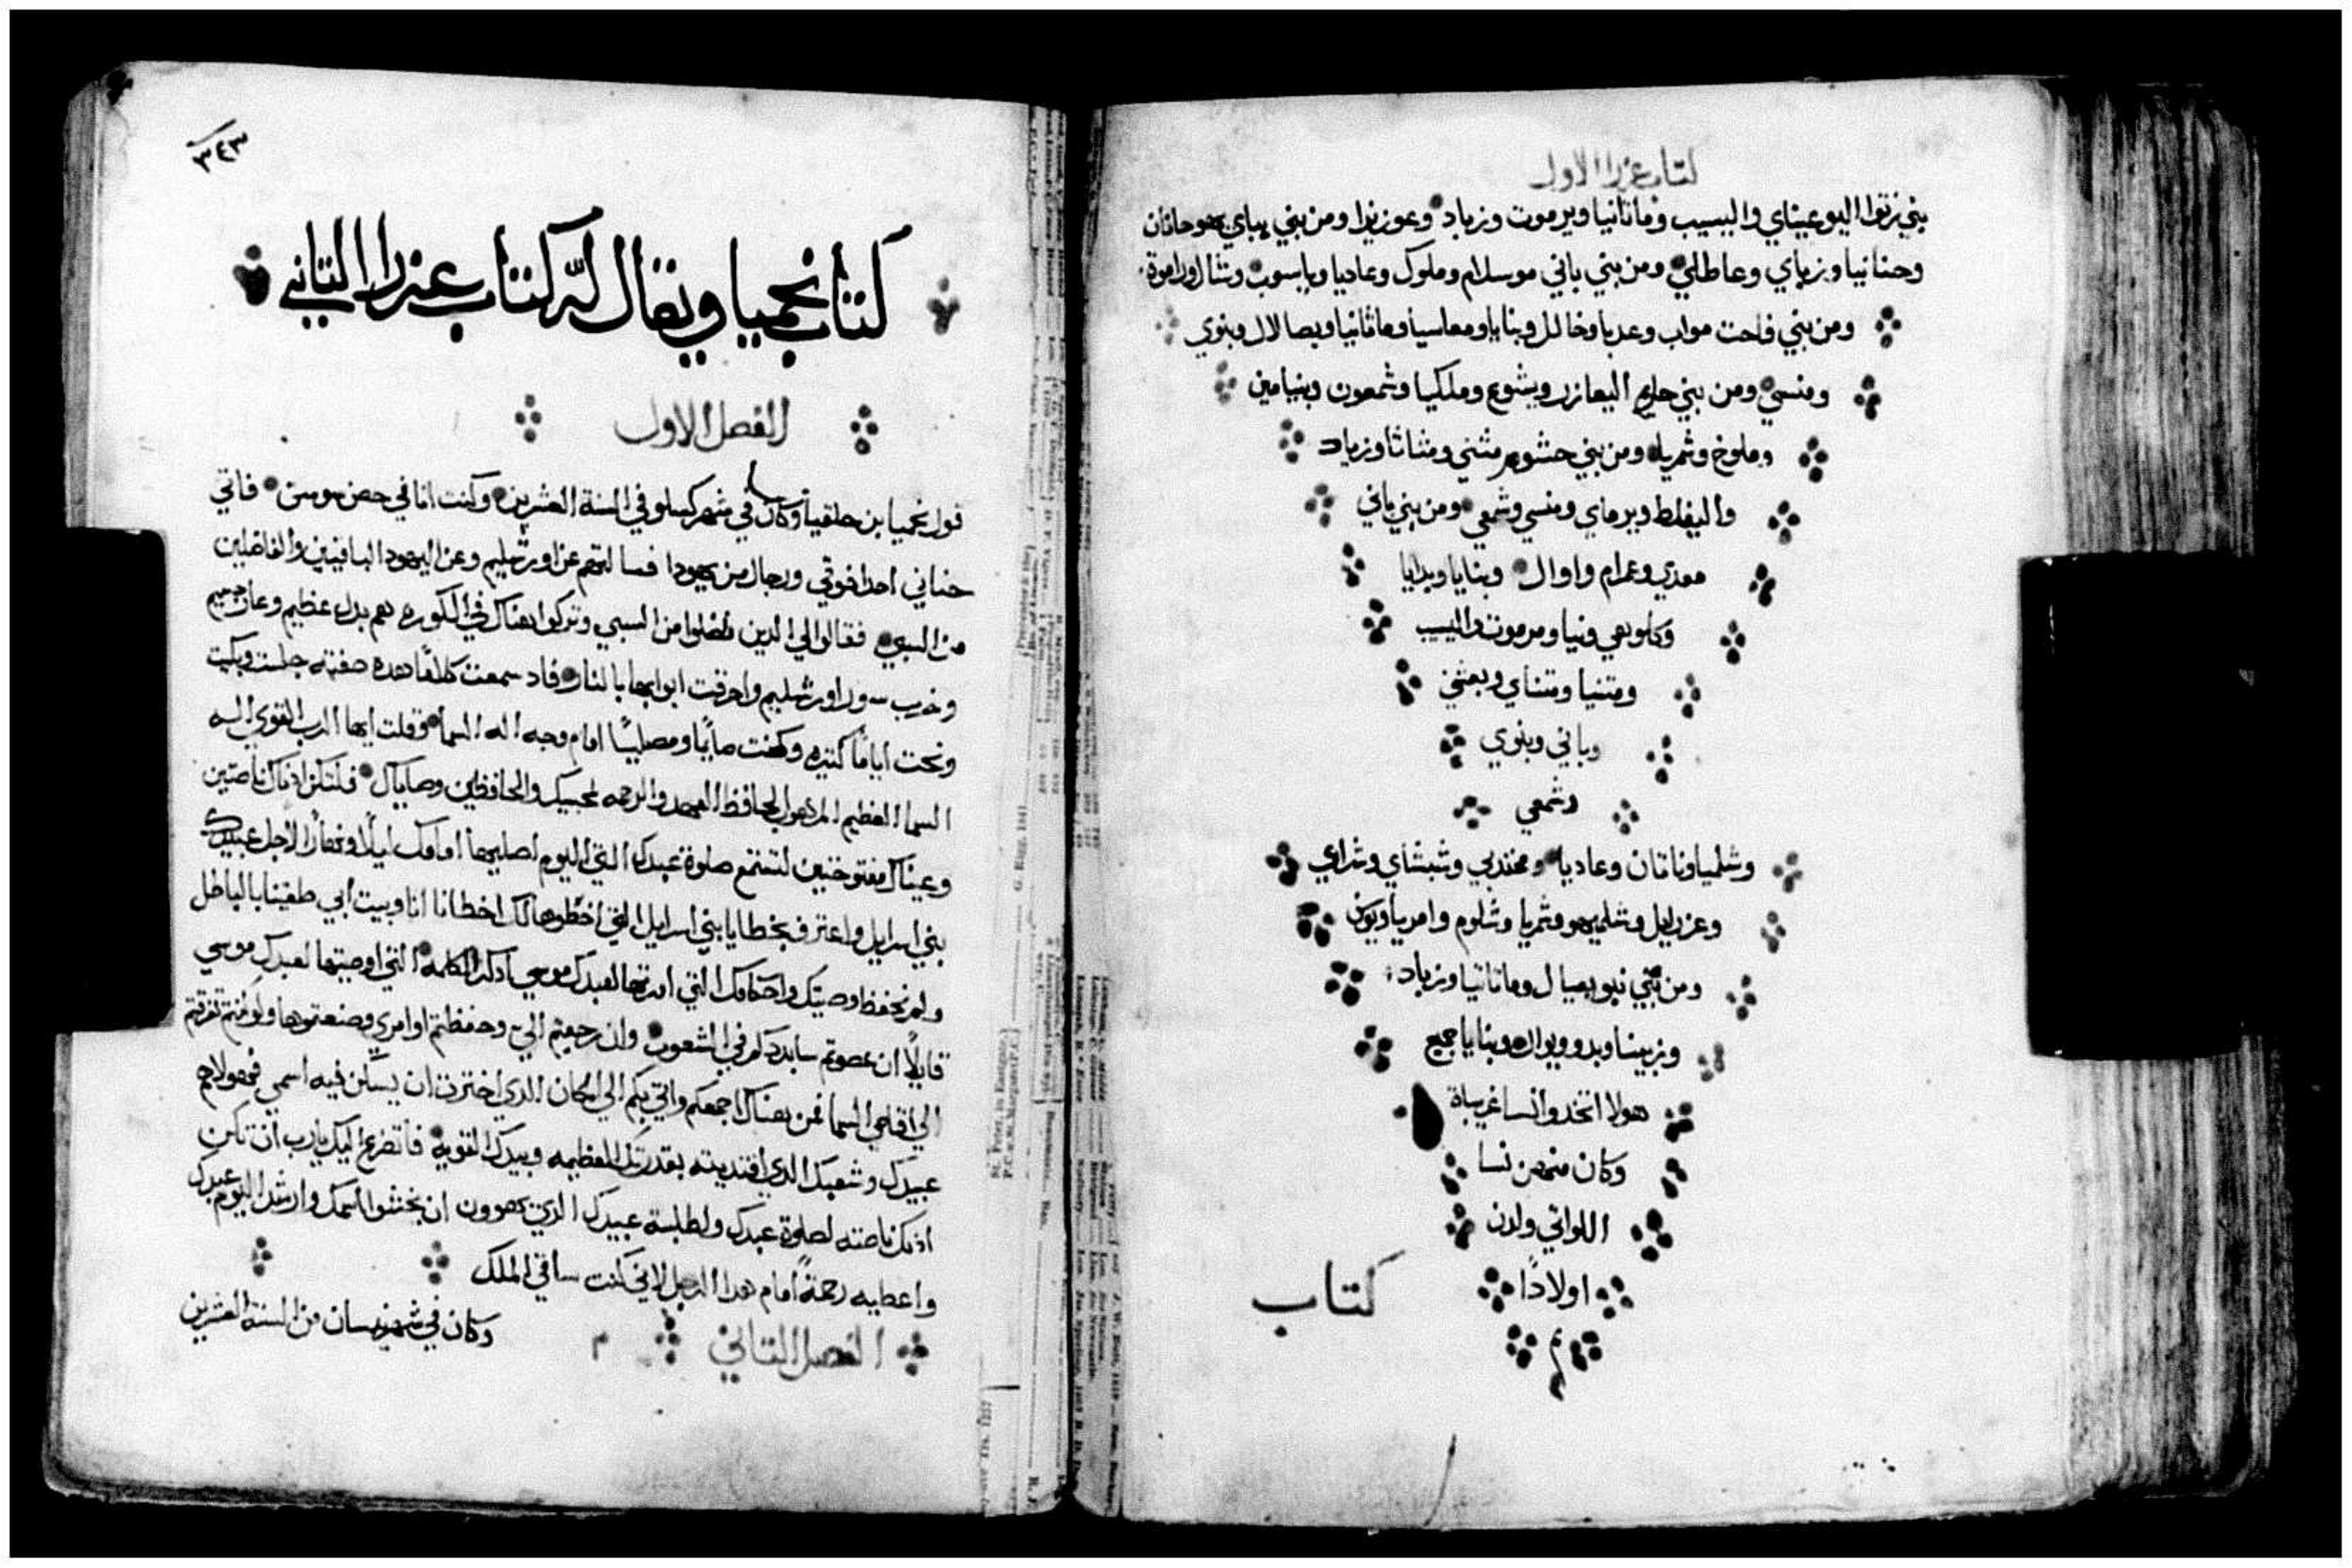 كتاب عزرا الاول
بني زتوا اليوعيناي واليسيب وماتانيا ويرموت وزباد وعوزيزا ومن بني يباي يهوحانان
وحنانيا وزباي وعاطلي ومن بني باني موسلام وملوك وعاديا وياسوب وشال وراموة
ومن بني فاحت مواب وعدنا وخالل وبنايا ومعاسيا وماثانيا وبصالال وبنوي
ومنسي ومن بني حارم اليعازر ويشوع وملكيا وشمعون وبنيامين
وملوخ وشمريا ومن بني حشوم متني ومتاثا وزباد
واليفلط ويرماي ومنسي وشمعي ومن بني باني
معدي وعمرام واوال وبنايا وبدايا
وكلوهي ونيا ومرموت واليسيب
ومتنيا ومتناي وبعثي
وباني وبنوي
وشمعي
وشلميا وناتان وعاديا ومخندبي وشبشاي وشراي
وعزرايل وشلميهو وشمريا وشلوم وامريا ويوسف
ومن بني نبو يعيال وماتاتيا وزباد
وزبينا وبدو ويوال وبنايا جميع
هولا اتخدوا نسا غريباة
وكان منهن نسا
اللواتي ولدن
اولادًا
كتاب
٣٤٣
كتاب نحميا ويقال له كتاب عزرا التاني
الفصل الاول
قول نحميا بن حلقيا وكان في شهر كسلو في السنة العشرين وكنت انا في حصن سوسن فاتي
حناني احد اخوتي ورجال من يهودا فسالتهم عن اورشليم وعن اليهود الباقيين والفاضلين
من السبي فقالوا لي الدين فضلوا من السبي وتركوا هناك في الكوره هم بدل عظيم وعار جسيم
وخرب سور اورشليم واحرقت ابوابها بالنار فاد سمعت كلامًا هده صفته جلست وبكيت
ونحت ايامًا كتيره وكنت صايمًا ومصليًا امام وجه اله السما وقلت ايها الرب القوي اله
السما العظيم المرهوب الحافظ العهد والرحمه لمحبيك والحافظين وصاياك فلتكن ادناك ناصتين
وعيناك مفتوحتين لتستمع صلوة عبدك التي اليوم اصليها امامك ليلًا ونهارًا لاجل عبيدك
بني اسرايل واعترف بخطايا بني اسرايل التي اخطوها لك اخطانا انا وبيت ابي طغينا بالباطل
ولم نحفظ وصيتك واحكامك التي امرتها لعبدك موسي ادكر الكلمه التي اوصيتها لعبدك موسي
قايلًا ان عصوتم سابددكم في الشعوب وان رجعتم الي وحفظتم اوامري وصنعتموها ولو كنتم تفرقتم
الي اقاصي السما فمن هناك اجمعكم واتي بكم الي المكان الدي اخترت ان يسكن فيه اسمي فهولا هم
عبيدك وشعبك الدي افتديته بقدرتك العظيمه وبيدك القويه فاتضرع اليك يارب ان تكن
ادنك ناصته لصلوة عبدك ولطلبة عبيدك الدين يهوون ان يخشوا اسمك وارشد اليوم عبدك
واعطيه رحمةً امام هدا الرجل لاني كنت ساقي الملك
الفصل التاني
وكان في شهر نيسان من السنة العشرين